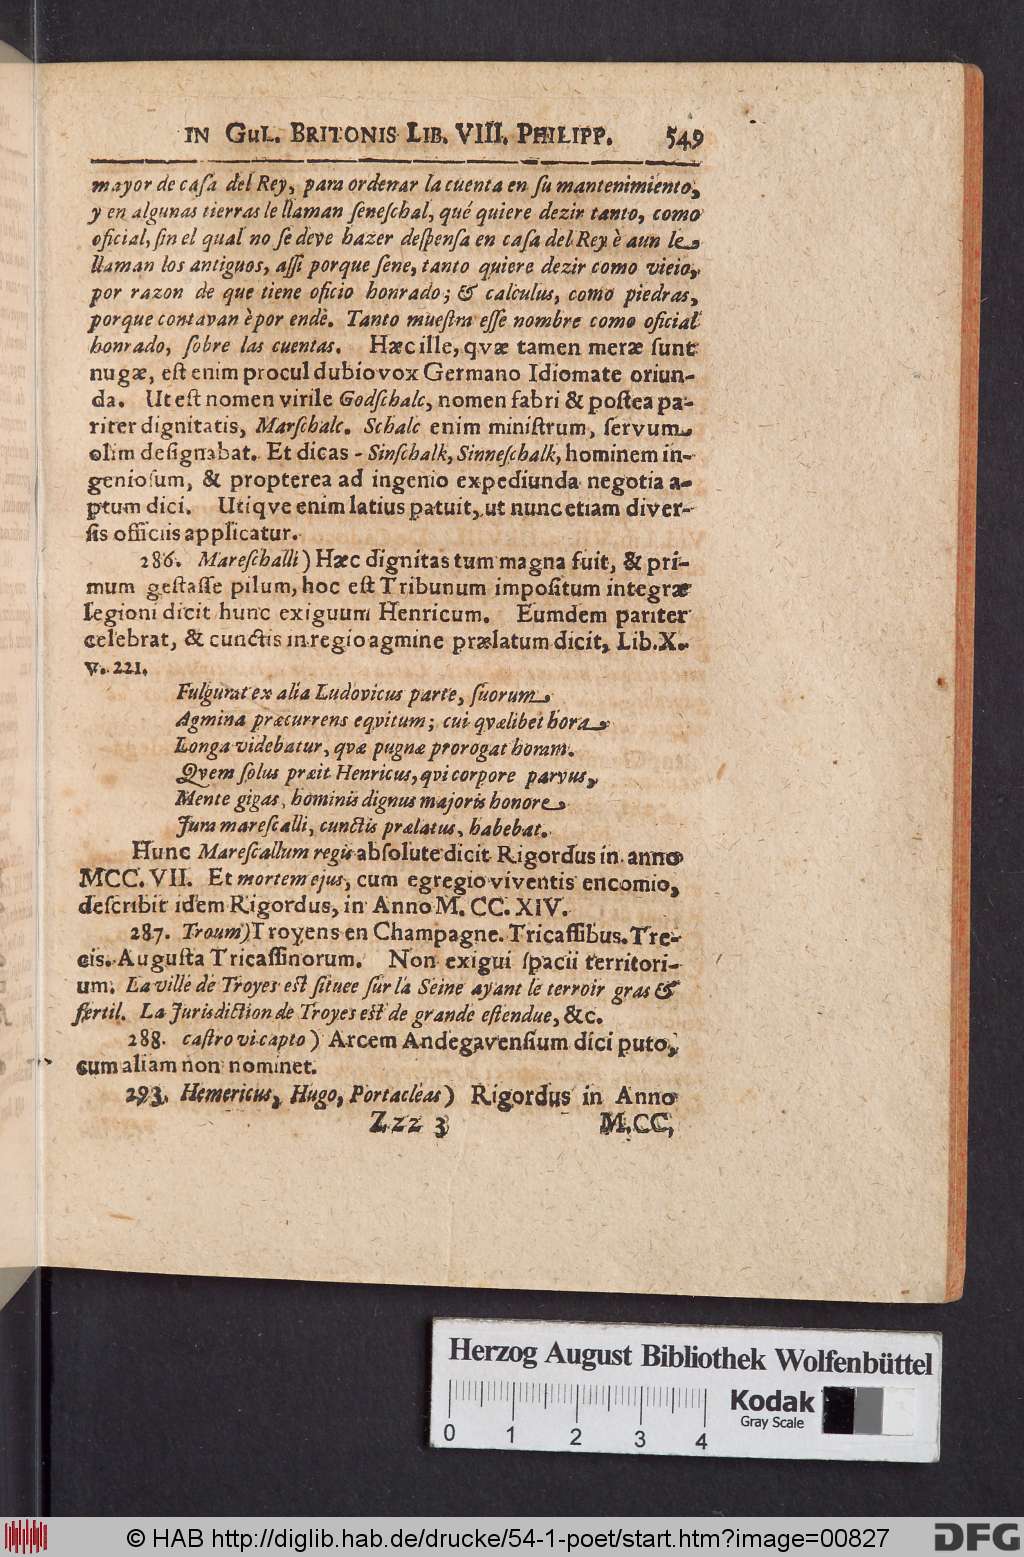 IN GuL. BRITONIS LIB. VIII. PHILIPP. 549
mayor de caſa del Rey, para ordenar la cuenta en ſu mantenimiento,
y en algunas tierras le llaman ſeneſchal, qué quiere dezir tanto, como
oficial, ſin el qual no ſe deve hazer deſpenſa en caſa del Rey è aun le
llaman los antiguos, aſſi porque ſene, tanto quiere dezir como vieio,
por razon de que tiene oficio honrado; & calculus, como piedras,
porque contavan è por ende. Tanto mueſtra eſſe nombre como oficial
honrado, ſobre las cuentas. Hæc ille, qvæ tamen meræ ſunt
nugæ, eſt enim procul dubio vox Germano Idiomate oriun-
da. Ut eſt nomen virile Godſchalc, nomen fabri & poſtea pa-
riter dignitatis, Marſchalc. Schalc enim miniſtrum, ſervum
olim deſignabat. Et dicas - Sinſchalk, Sinneſchalk, hominem in-
genioſum, & propterea ad ingenio expediunda negotia a-
ptum dici. Utiqve enim latius patuit, ut nunc etiam diver-
ſis officiis applicatur.
286. Mareſchalli) Hæc dignitas tum magna fuit, & pri-
mum geſtaſſe pilum, hoc eſt Tribunum impoſitum integræ
legioni dicit hunc exiguum Henricum. Eumdem pariter
celebrat, & cunctis in regio agmine prælatum dicit, Lib. X.
v. 221.
Fulgurat ex alia Ludovicus parte, ſuorum
Agmina præcurrens eqvitum; cui qvælibet hora
Longa videbatur, qvæ pugnæ prorogat horam.
Qvem ſolus præit Henricus, qvi corpore parvus,
Mente gigas, hominis dignus majoris honore
Jura mareſcalli, cunctis prælatus, habebat.
Hunc Mareſcallum regis abſolute dicit Rigordus in anno
MCC. VII. Et mortem ejus, cum egregio viventis encomio,
deſcribit idem Rigordus, in Anno M. CC. XIV.
287. Troum) Troyens en Champagne. Tricaſſibus. Tre-
cis. Auguſta Tricaſſinorum. Non exigui ſpacii territori-
um. La ville de Troyes eſt ſituee ſur la Seine ayant le terroir gras &
fertil. La Jurisdiction de Troyes eſt de grande eſtendue, &c.
288. caſtro vi capto) Arcem Andegavenſium dici puto,
cum aliam non nominet.
293. Hemericus, Hugo, Portacleas) Rigordus in Anno
Zzz 3 M.CC,
Herzog August Bibliothek Wolfenbüttel
0 1 2 3 4
Kodak
Gray Scale
© HAB http://diglib.hab.de/drucke/54-1-poet/start.htm?image=00827
DFG